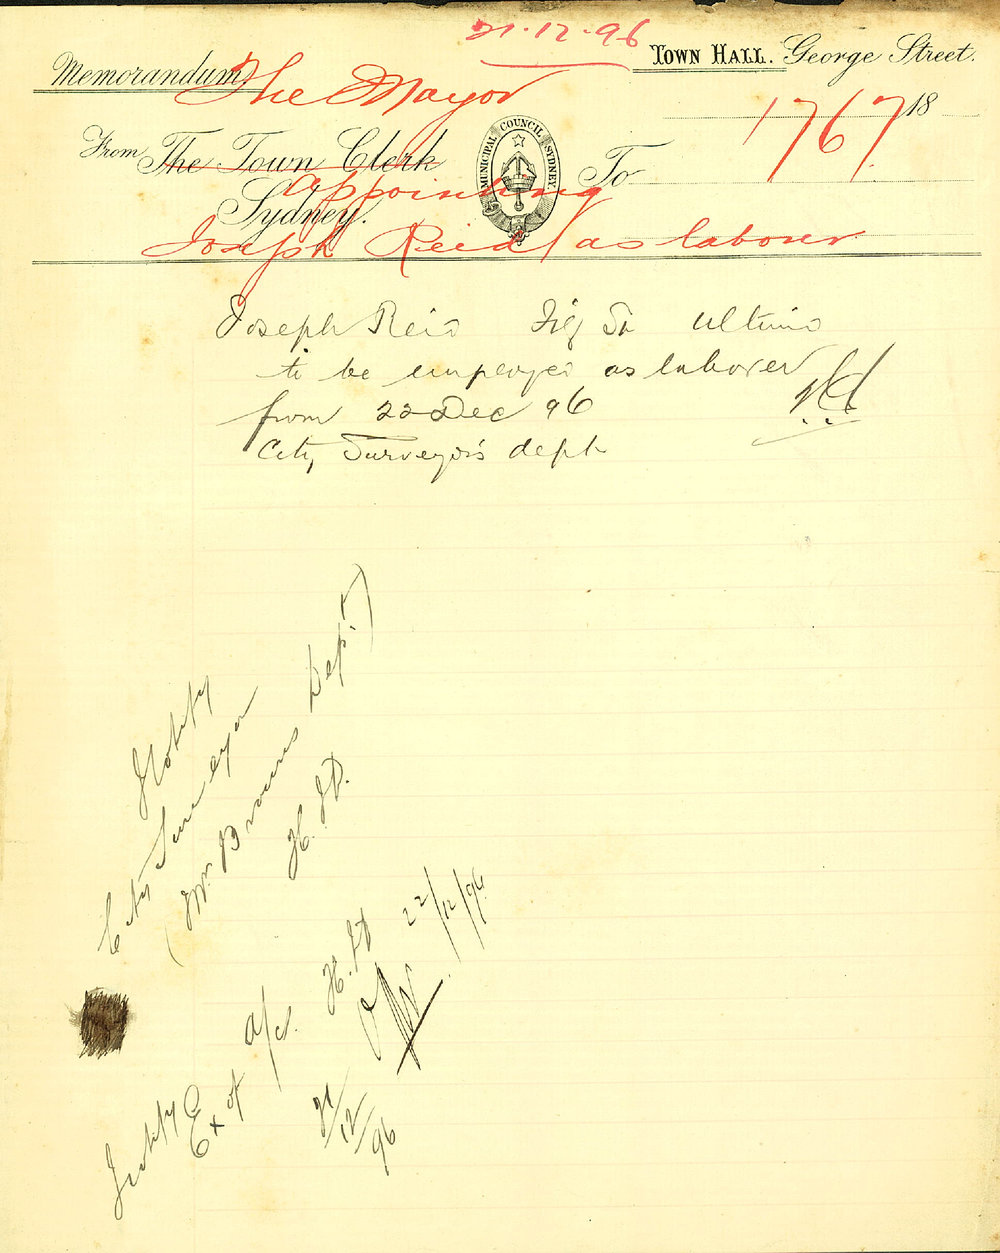 21.12.96
Town Hall. George Street.
Memorandum.
The Mayor
1767
18
From The Town Clerk
MUNICIPAL COUNCIL SYDNEY
To
Sydney.
appointing
Joseph Reid / as laborer
Joseph Reid Fig St Ultimo
to be employed as laborer
from 22 Dec 96
City Surveyor's dept
Notify
City Surveyor
(Mr. Browns Dept.)
H.J.D.
22/12/96
Notify Ex of a/cs. H.J.D
21/12/96